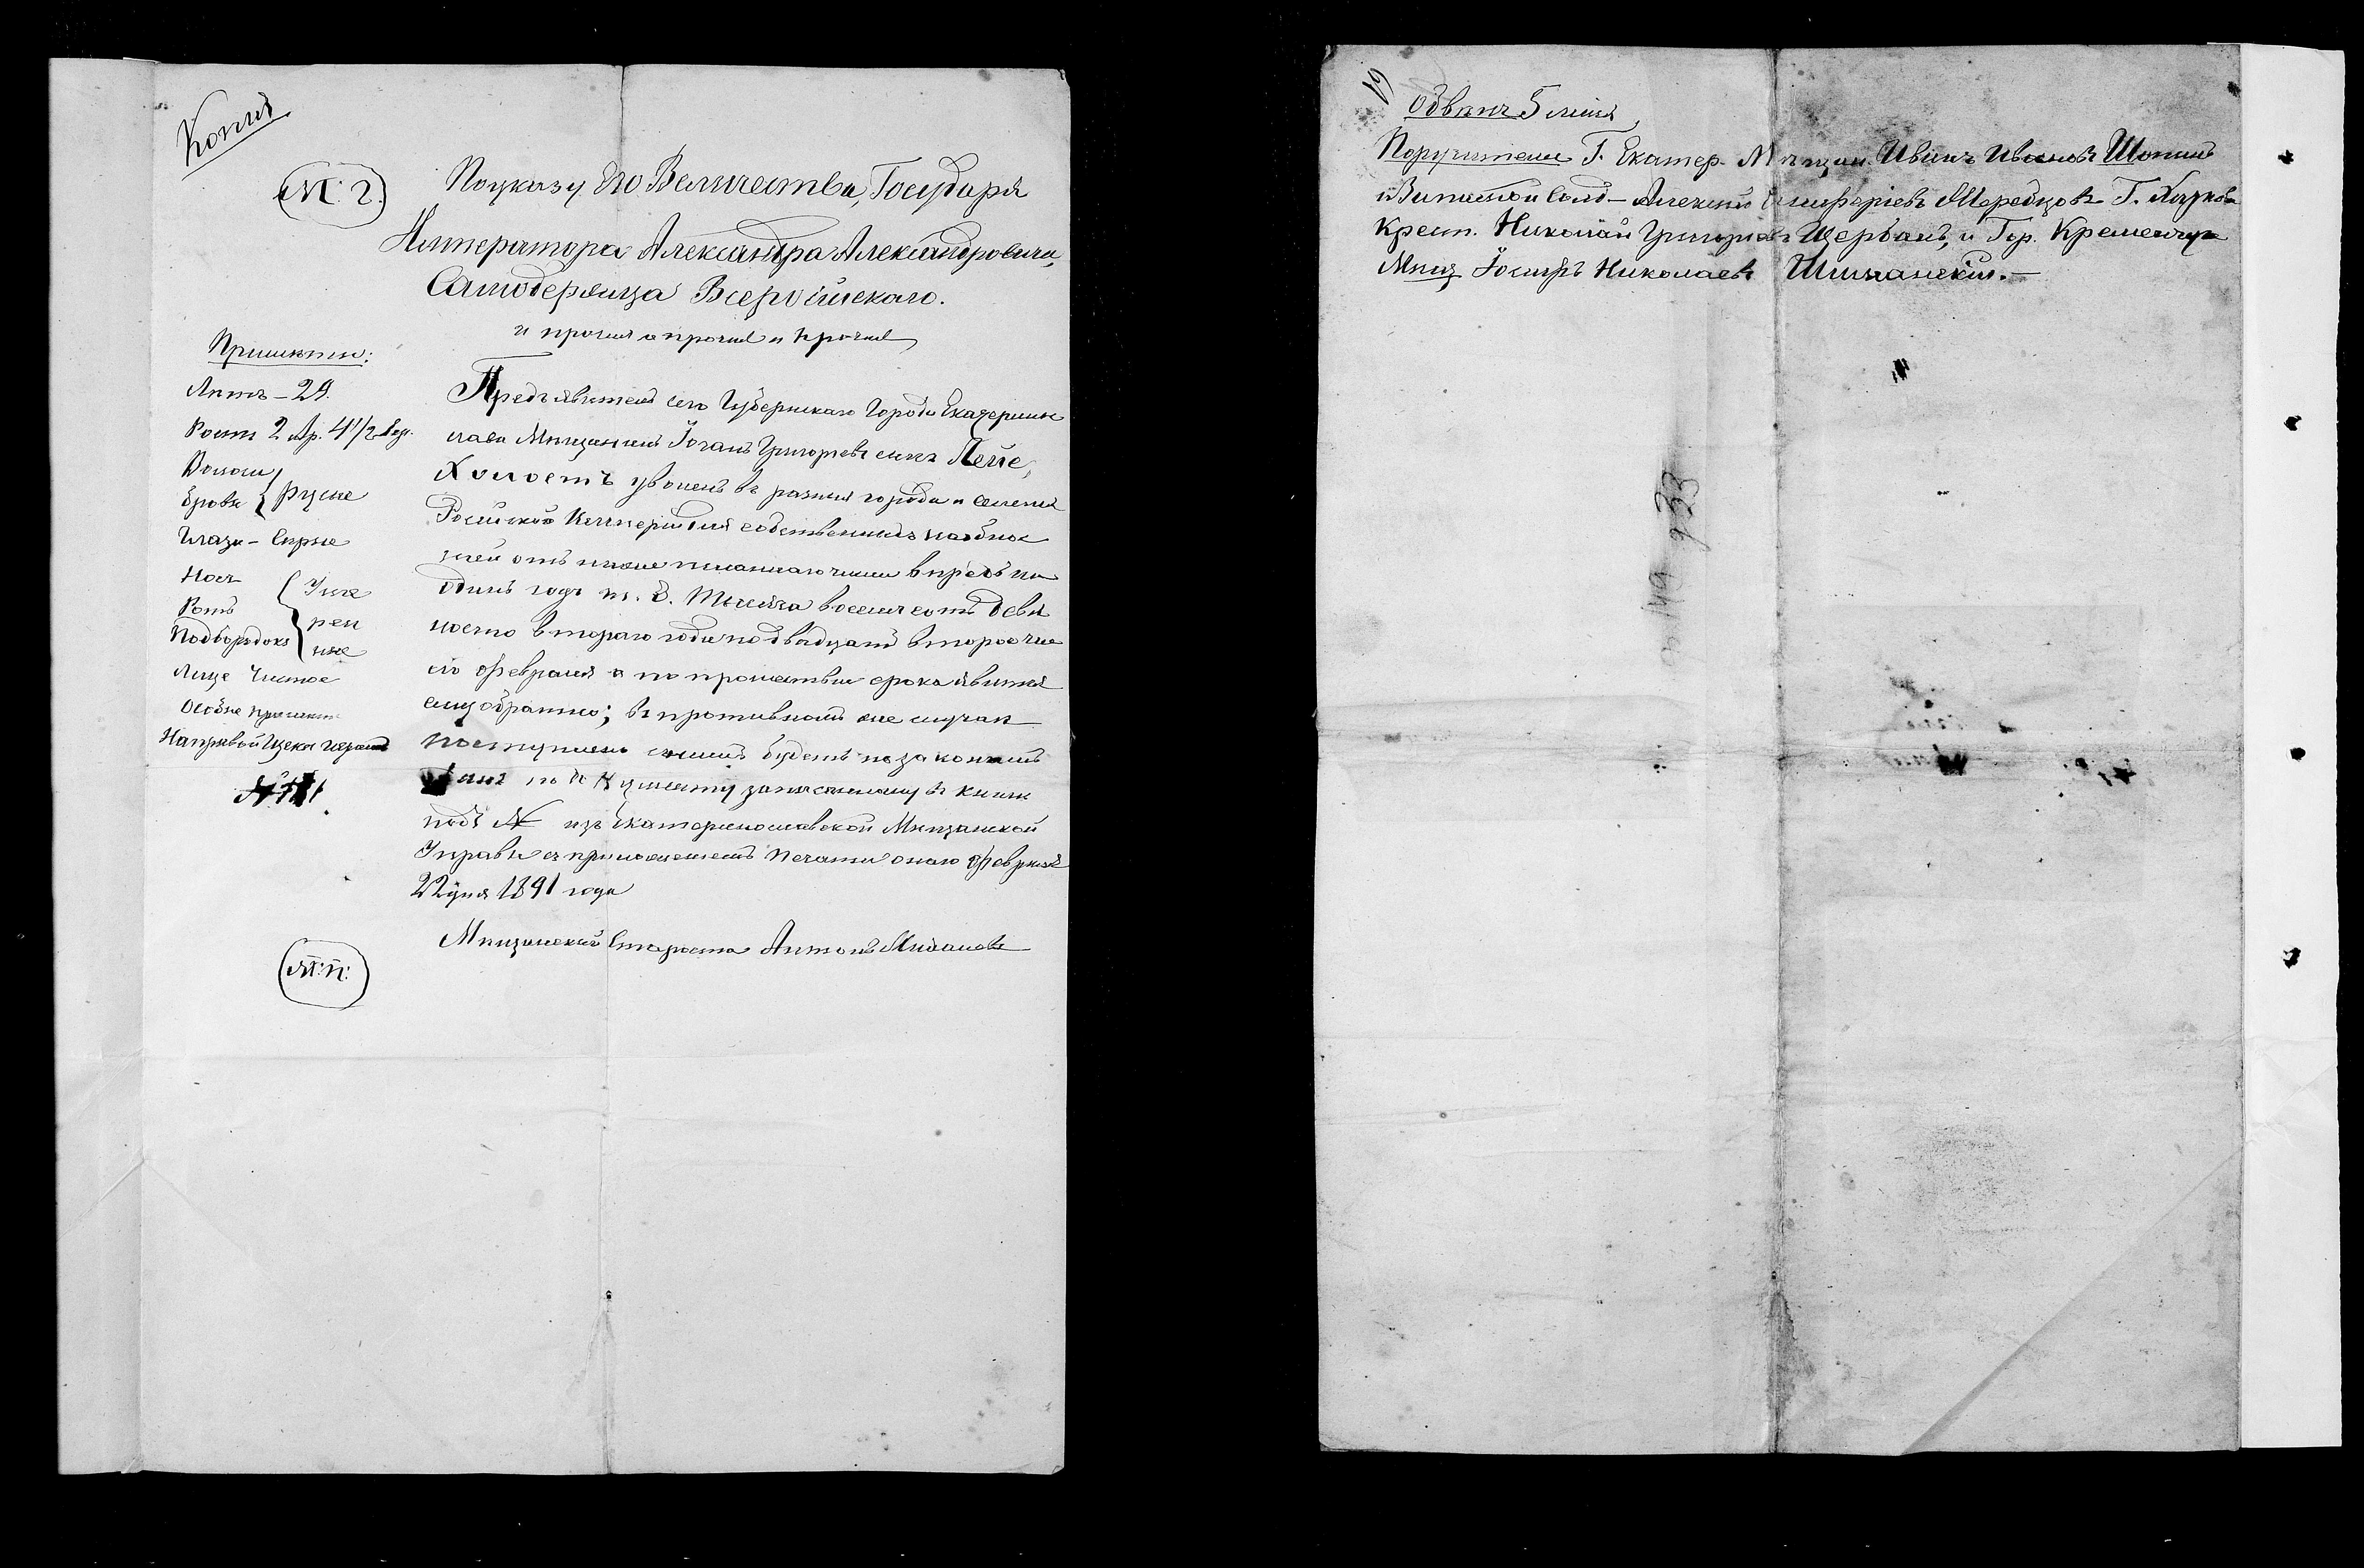 Копия
М: г.
По указу Его Величества, Государя
Императора Александра Александровича,
Самодержца Всеросійскаго.
и прочия и прочия и прочия
Приметы:
Летъ – 29.
Ростъ 2 Ар. 4 1/2 вер.
Волосы
брови } русые
Глаза – Серые
Носъ
Ротъ
Подбородокъ
{ Уме
рен
ные
Лице Чистое
Особые приметы
На правой щеке
Предъявитель сего Губернскаго Города Екатерино
слава Мещанинъ Іоганъ Григорьевъ сынъ Лейе,
Холостъ уволенъ въ разные города и селения
Росийской Империи для собственныхъ надобно
стей отъ ниже писаннаго числа впредь на
одинъ годъ т. е. Тысяча восемь сотъ девя
носто втораго года по двадцать второе чис
ло февраля а по прошествии срока явится
ему обратно; въ противномъ же случае
поступлено съ нимъ будетъ по законамъ
данъ по документу записанному въ книгу
подъ № изъ Екатеринославской Мещанской
Управы съ приложениемъ печати оной февраля
22 дня 1891 года
Мещанский Староста Антонъ
М: п:
Поручители Г. Екатер. Мещан. Иванъ Ивановъ Шопинъ
Билетной Солд – Алексей Г. Харькова
Крест. Николай Григорьевъ Щербанъ, и Гор. Кременчуга
Мещ Іосифъ Николаевъ